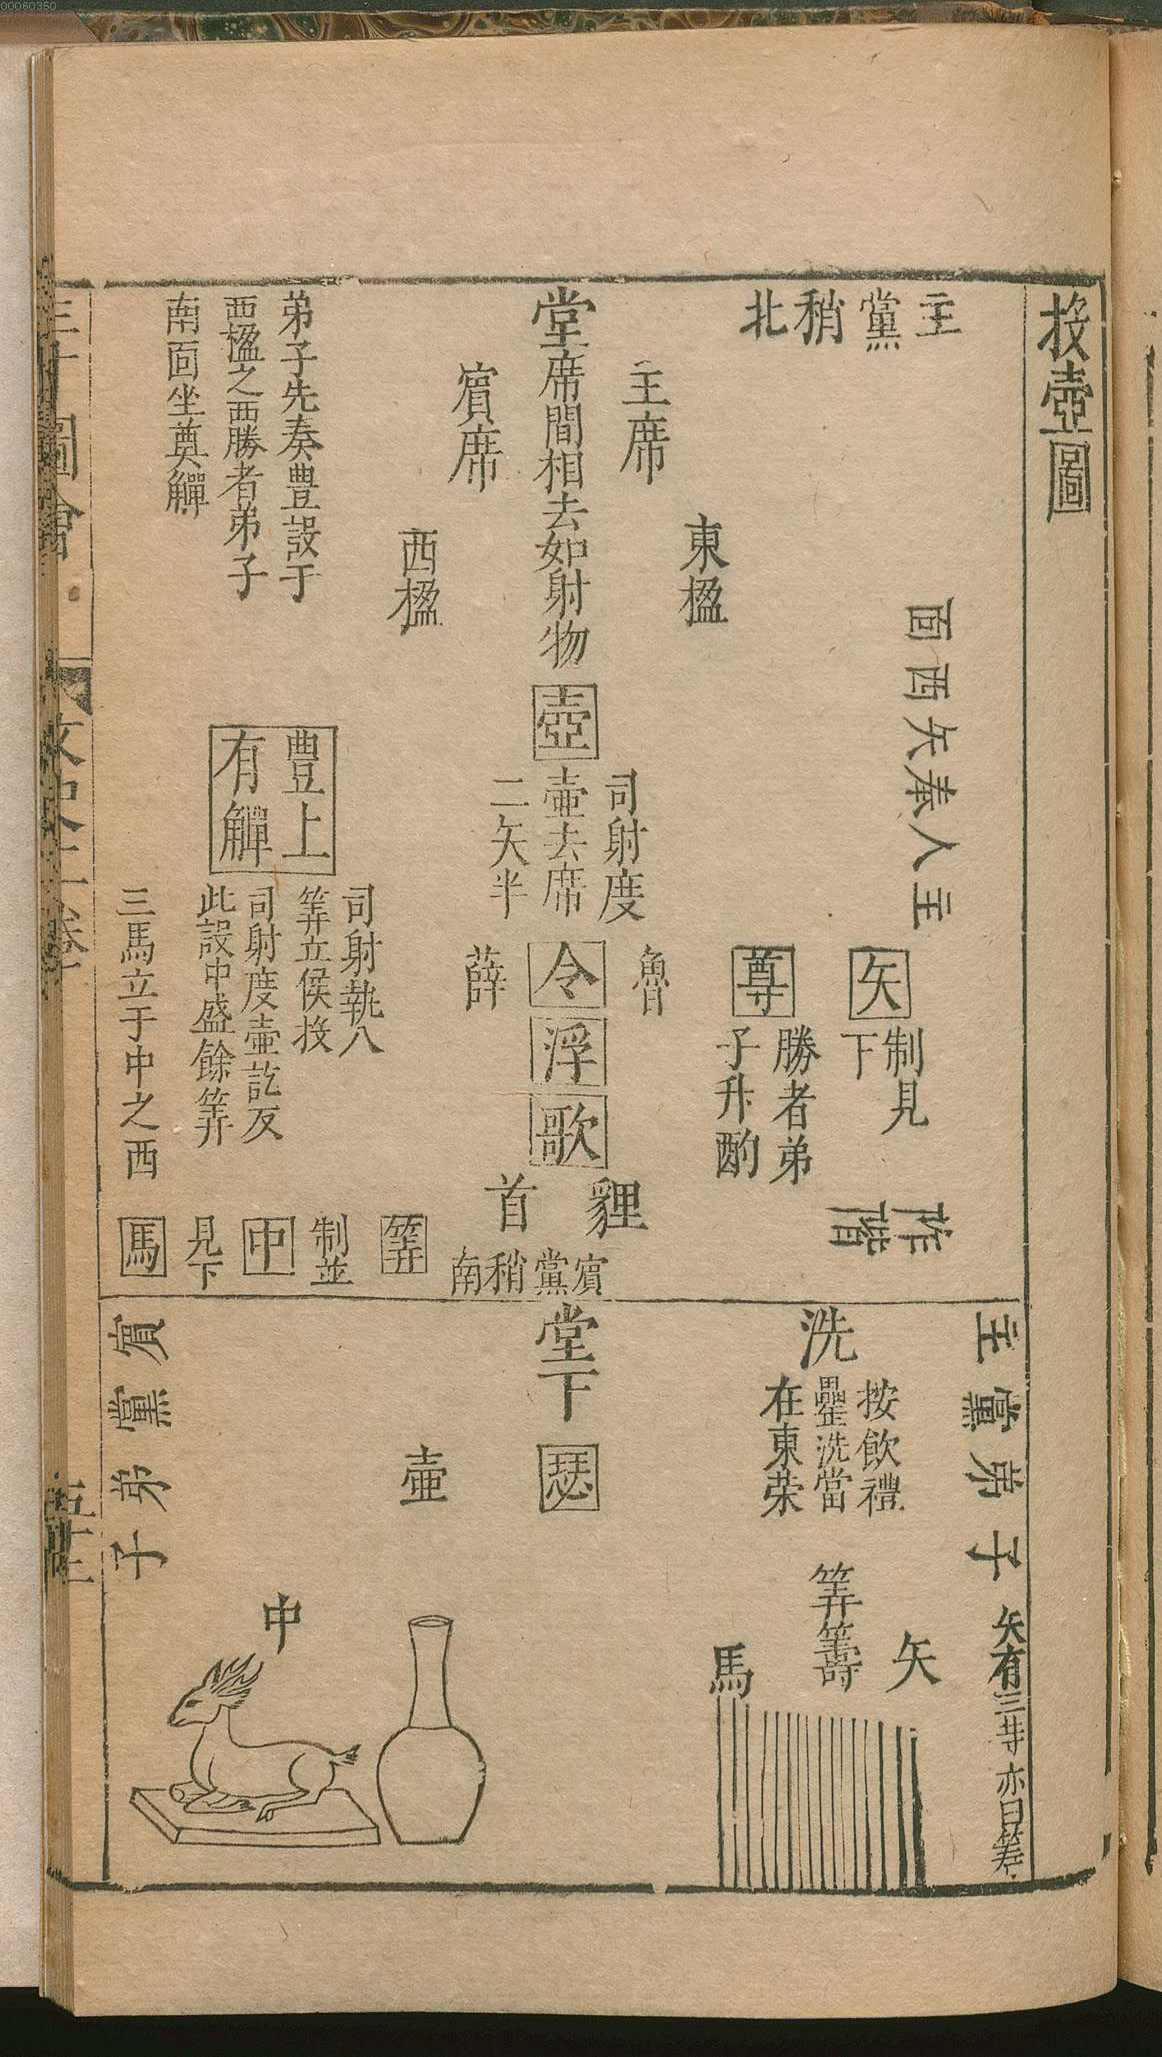 00060350
投壺圖
主黨稍北
主人奉矢西面
矢
制見
下
阼階
尊
勝者弟
子升酌
東楹
主席
堂席間相去如射物
賓席
西楹
壺
司射度
壺去席
二矢半
魯
令
薛
浮
歌
貍首
賓黨稍南
弟子先奏豊設于
西楹之西勝者弟子
南面坐奠觶
豊上
有觶
司射執八
筭立俟投
司射度壺訖反
此設中盛餘筭
三馬立于中之西
筭
制並
中
見下
馬
主黨弟子
矢有三等亦曰籌
洗
按飲禮
罍洗當
在東荣
堂下
瑟
賓黨弟子
矢
筭籌
馬
壺
中
三才圖會
人事十卷